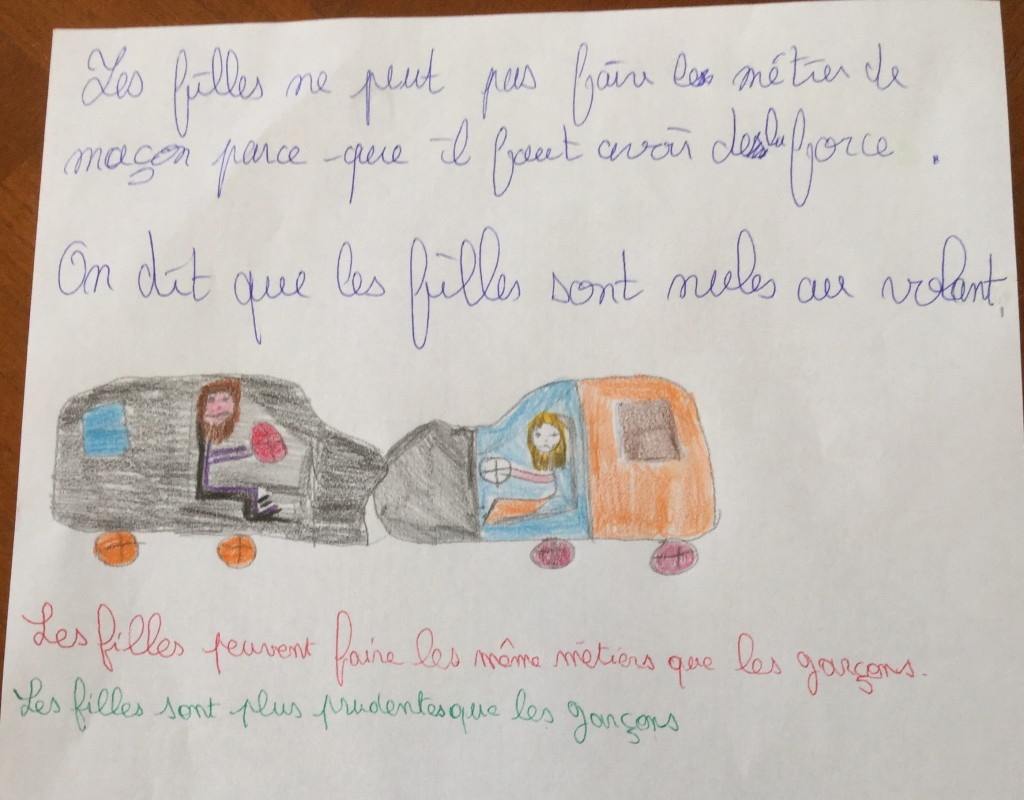 Les filles ne peut pas faire les métier de
maçon parce-que il faut avoir de la force.
On dit que les filles sont nules au volant.
Les filles peuvent faire les même métiers que les garçons.
Les filles sont plus prudentes que les garçons